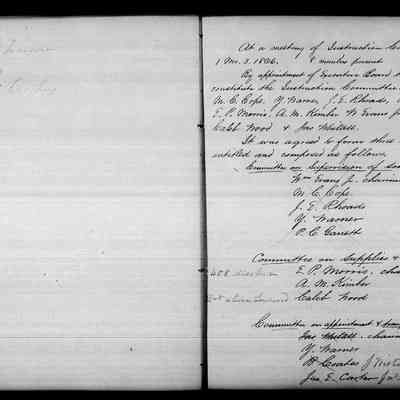 At a meeting of Instruction
1 Mo. 3. 1866. 8 members present
By appointment of Executive Board
constitute the Instruction Committee
M. C. Cope, Y. Warner, J. E. Rhoads,
E. P. Morris, A. M. Kimber W Evans Jr
Caleb Wood & Jas Whitall.
It was agreed to form
entitled and composed as follows,
Committee on Supervision of
Wm Evans Jr. chairman
M. C. Cope
J. E. Rhoads
Y. Warner
P. C. Garrett
Committee on Supplies &
E. P. Morris,
A. M. Kimber
Caleb Wood
Committee on appointment &
Jas Whitall,
Y. Warner
Jas. E. Carter